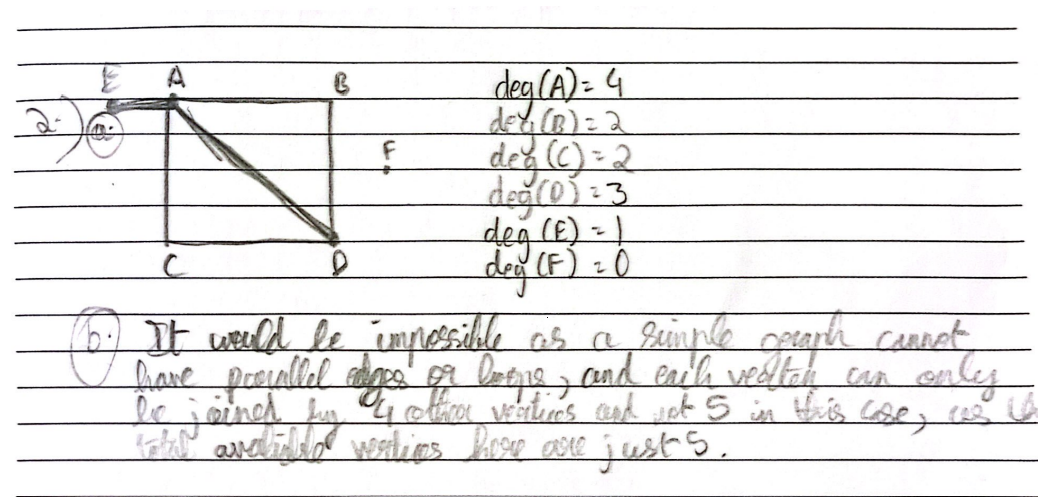 E A B
2.) a.
F
C D
deg(A) = 4
deg(B) = 2
deg(C) = 2
deg(D) = 3
deg(E) = 1
deg(F) = 0
b. It would be impossible as a simple graph cannot
have parallel edges or loops, and each vertex can only
be joined by 4 other vertices and not 5 in this case, as
total available vertices here are just 5.